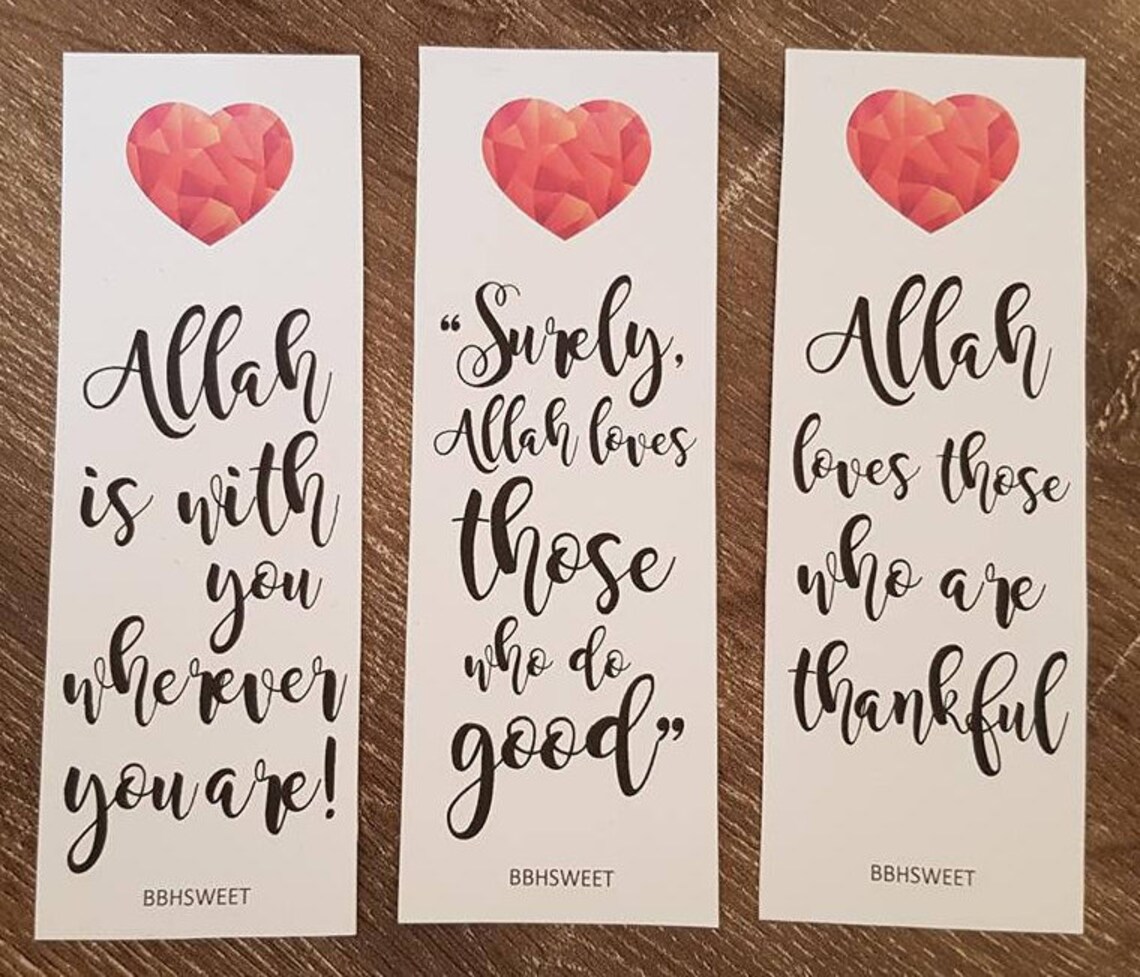 Allah
is with
you
wherever
you are!
BBHSWEET
“Surely,
Allah loves
those
who do
good”
BBHSWEET
Allah
loves those
who are
thankful
BBHSWEET